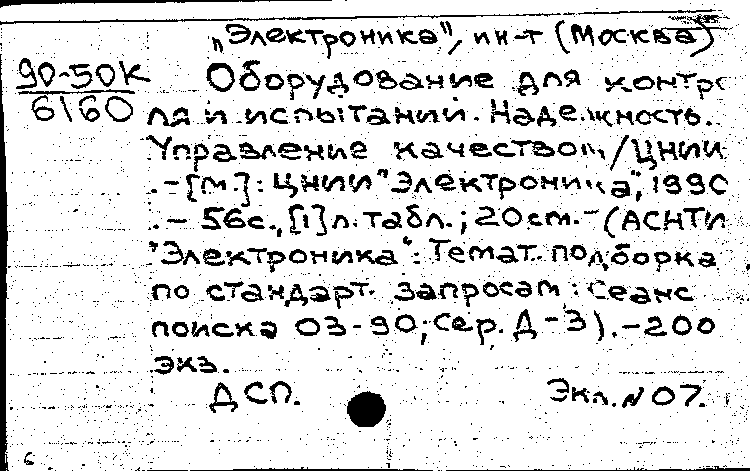 „Электроника", ин-т (Москва)
90-50К
6160
Оборудование для контро
ля и испытаний. Надежность.
Управление качеством/ЦНИИ
.-[М.]: ЦНИИ "Электроника", 1990
.- 56с., [1]л. табл.; 20см.-(АСНТИ
"Электроника": Темат. подборка
по стандарт. запросам: Сеанс
поиска 03-90; Сер. Д-3).-200
экз.
ДСП. Экл. № 07.
6